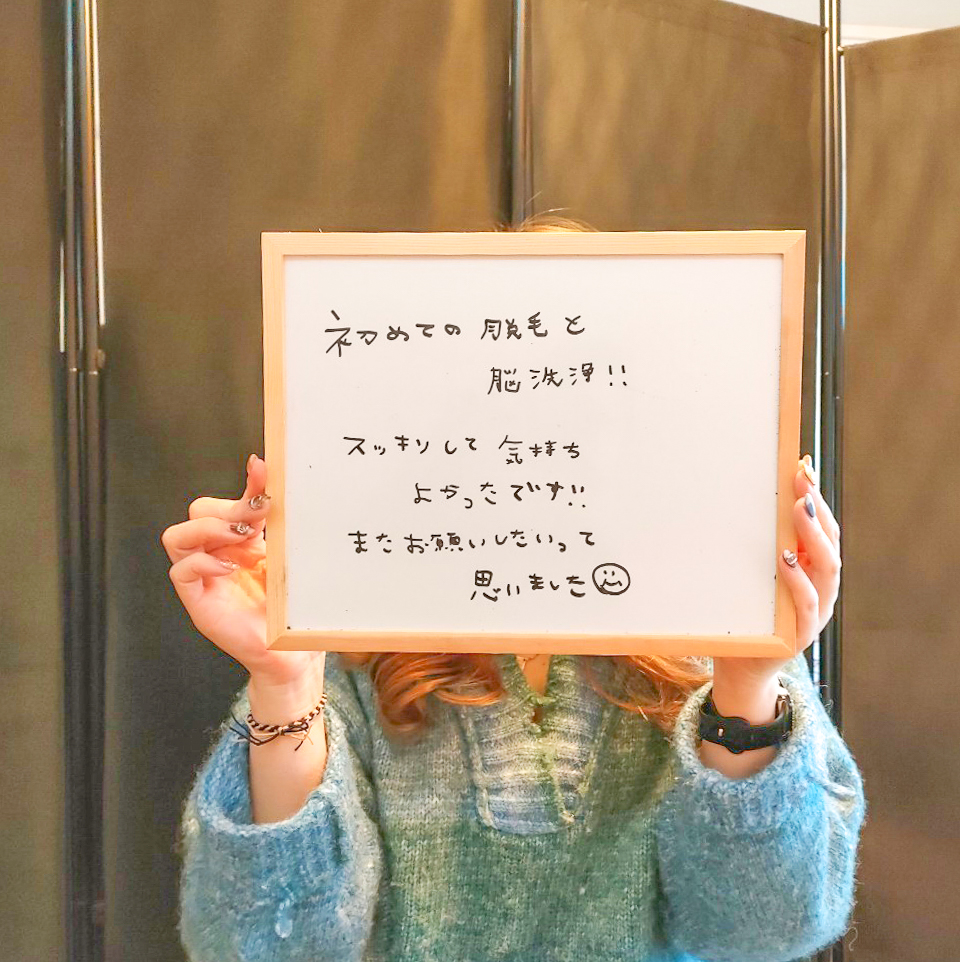 初めての 脱毛と
脳洗浄!!
スッキリして 気持ち
よかったです!!
またお願いしたいって
思いました